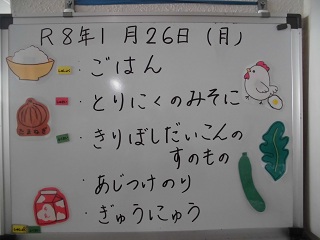 R8年1月26日(月)
・ごはん
・とりにくのみそに
・きりぼしだいこんの
すのもの
・あじつけのり
・ぎゅうにゅう